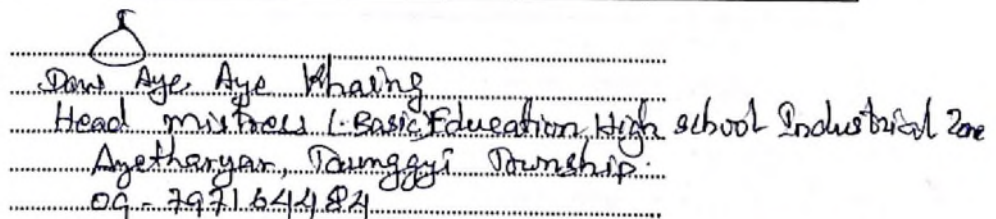 Daw Aye Aye Khaing
Head mistress (. Basic Education High school Industrial Zone
Ayetharyar, Taunggyi Township.
09 - 797164484